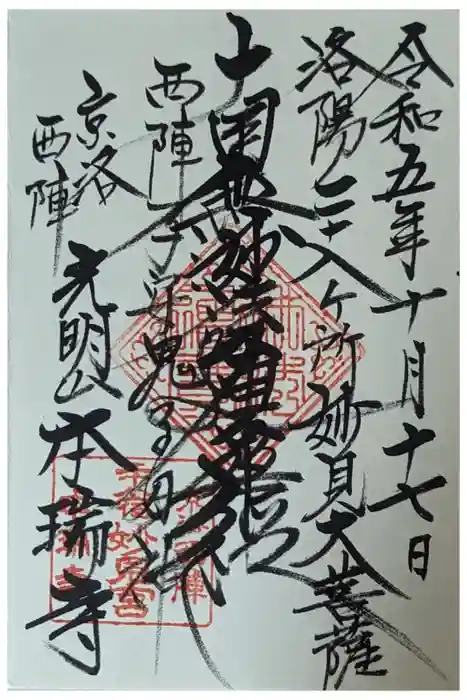 令和五年十月十七日
洛陽二十八ヶ所妙見大菩薩
南無妙法蓮華経
西陣子安鬼子母神
京洛
西陣
光明山本瑞寺